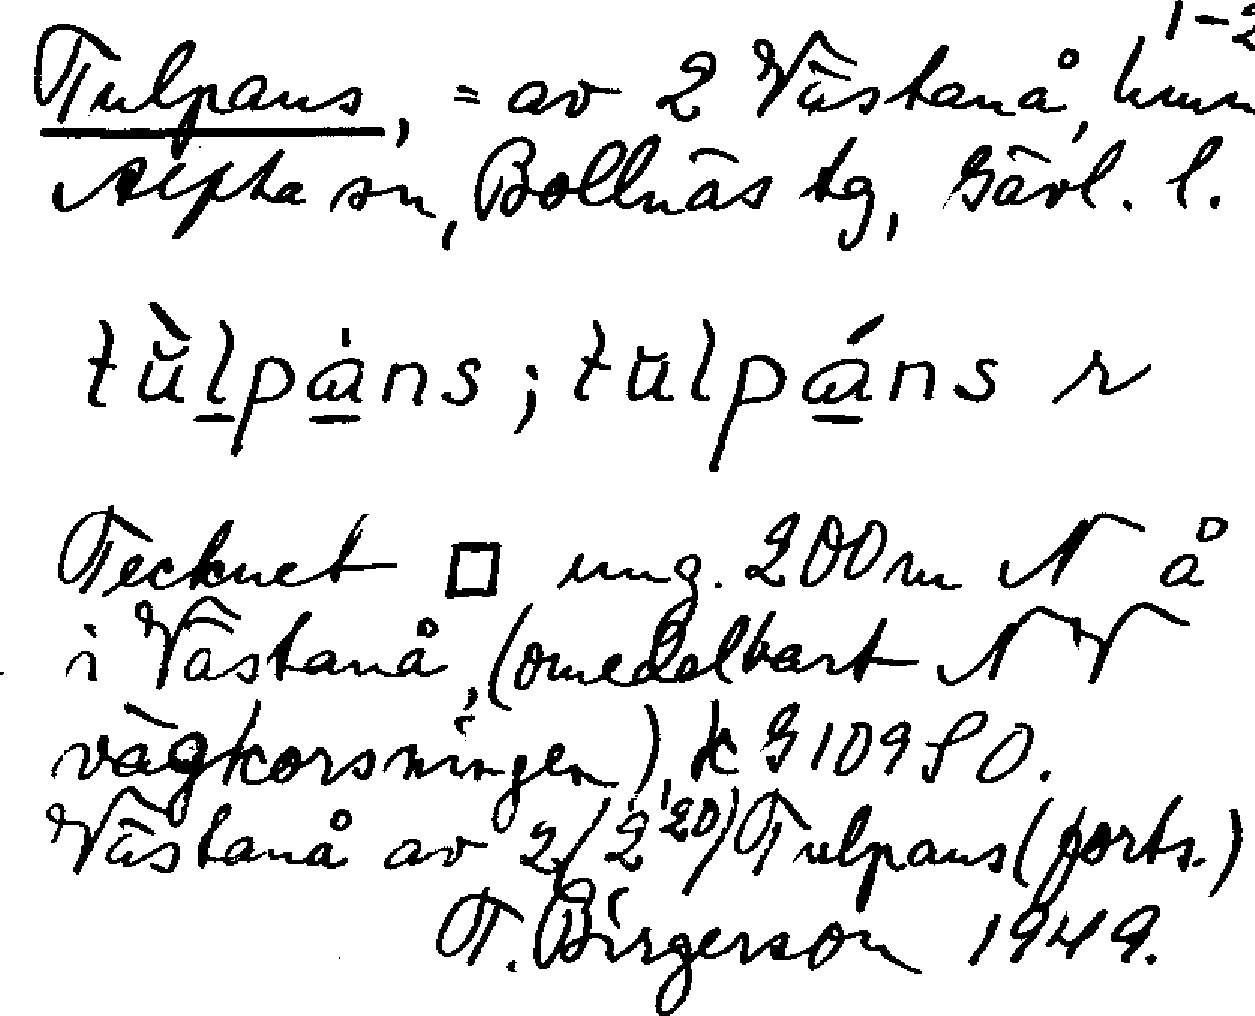 1-2
Tulpans, = av 2 Västanå,
Alfta sn, Bollnäs tg, Gävl. l.
tùlpàns; tulpáns r
Tecknet □ ung. 200 m N å
i Västanå, (omedelbart NV
vägkorsningen), k G 109 SO.
Västanå av 2/2¹²⁰/Tulpans (forts.)
T. Birgerson 1949.